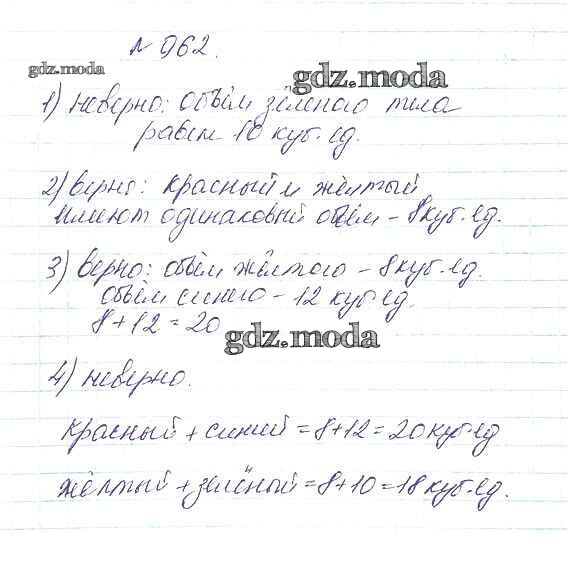 № 962.
gdz.moda
gdz.moda
1) неверно: объём зелёного тела
равен 10 куб. ед.
2) верно: красный и жёлтый
имеют одинаковый объём - 8 куб. ед.
3) верно: объём жёлтого - 8 куб. ед.
объём синего - 12 куб. ед.
8 + 12 = 20
gdz.moda
4) неверно.
красный + синий = 8 + 12 = 20 куб. ед
жёлтый + зелёный = 8 + 10 = 18 куб. ед.